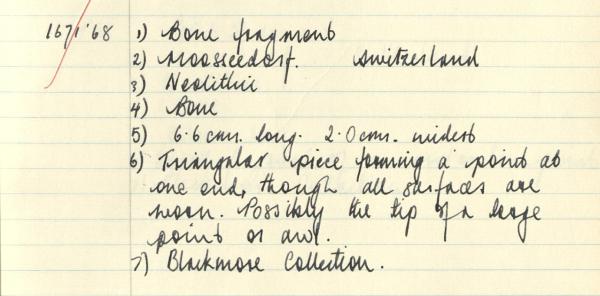 1671'68 1) Bone fragment
2) Moosseedorf. Switzerland
3) Neolithic
4) Bone
5) 6.6 cms. long. 2.0 cms. widest
6) Triangular piece forming a point at
one end, though all surfaces are
worn. Possibly the tip of a large
point or awl.
7) Blackmore Collection.